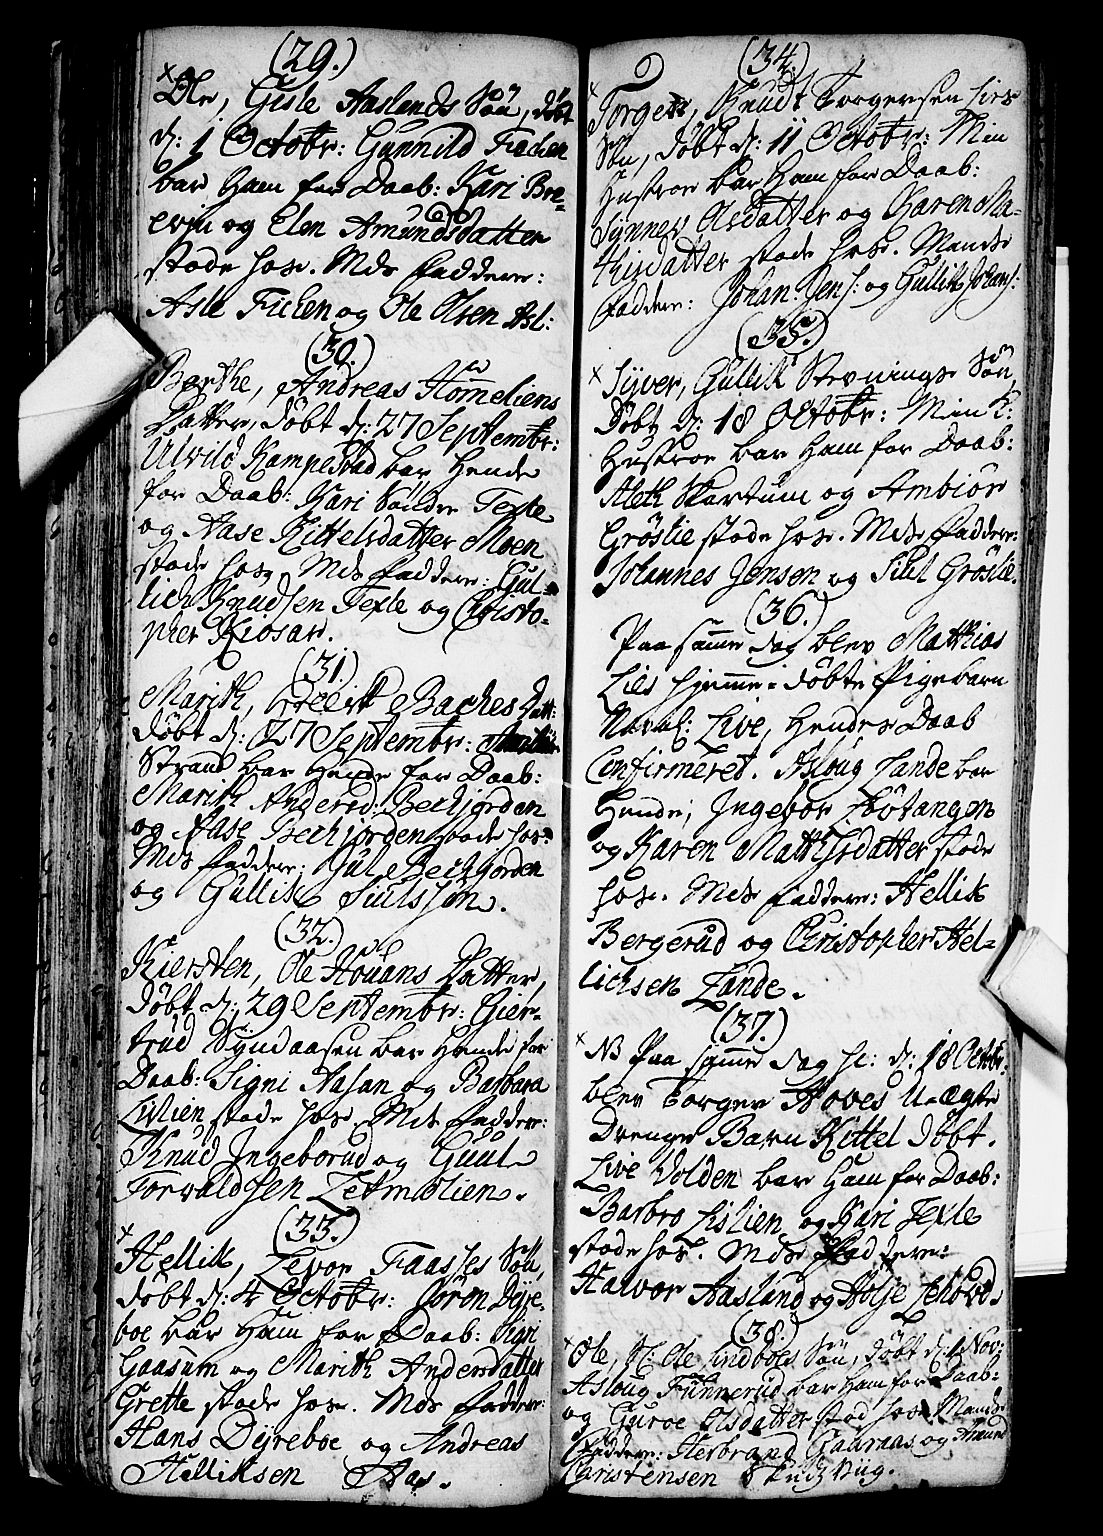 (29.)
Ole, Gisle Aaslands Søn, døbt
d: 1 Octobr: Gunnild Fichen
bar Ham for Daab: Kari Bre-
evin og Elen Amundsdatter
stode hose. Mds faddere:
Asle Fichen og Ole Olsen Asl:
(30.)
Berthe, Andreas Korneliens
Datter, døbt d: 27 Septembr:
Ulvild Kampestad bar Hende
for Daab: Kari Søndre Texle
og Aase Kittelsdatter Moen
stode hose Mds faddere: Gul-
lich Knudsen Texle og Christo-
pher Kiosar.
(31.)
Marith, Bachis Datt:
døbt d: 27 Septembr:
Strand bar Hende for Daab:
Marith Andersd: Bechjorden
og Aase Bechjorden stode hose
Mds faddere: Jul Bechjorden
og Gullik Siulssøn.
(32.)
Kiersten, Ole Houans Datter,
døbt d: 29 Septembr: Gier-
trud Syndaasen bar Hende for
Daab: Signi Aasan og Barbara
Lislien stode hose. Mds faddere:
Knud Ingeborud og Guul
Torvaldsen Letmolien.
(33.)
Hellik, Levor Faasses Søn,
døbt d: 4 Octobr: Jøren Dyre-
boe bar Ham for Daab: Sigri
Gaasum og Marith Andersdatter
Grette stode hose. Mds faddere:
Hans Dyreboe og Andreas
Helliksen Aas.
(34.)
Torger, Knudt Torgersen hies
Søn, døbt d: 11 Octobr: Min
Hustroe bar Ham for Daab:
Synnev Olsdatter og Karen Ma-
thisdatter stode hose. Mands
faddere: Johan: Jens: og Gullik Johans:
(35.)
Syver, Gullik Stevnings Søn,
Døbt d: 18 Octobr: Min K:
Hustroe bar Ham for Daab:
Aleth Skartum og Ambiør
Grøslie stode hose. Mds faddere:
Johannes Jensen og Siul Grøslie.
(36.)
Paa samme dag blev Matthias
Lies hjemme-døbte Pigebarn
Navnl: Live, Hendes Daab
Confirmeret. Asloug Lande bar
Hende; Ingebor Fløtangen
og Karen Mathisdatter stode
hose. Mds faddere: Hellik
Bergerud og Christopher Hel-
lichsen Lande.
(37.)
NB Paa samme dag sc: d: 18 Octobr:
blev Torger Hoves Uægte
Drenge Barn Kittel døbt.
Live Volden bar Ham for Daab:
Barbro Lislien og Kari Texle
stode hose. Mds Faddere:
Halvor Aasland og Holje Lehovd.
(38.)
Ole, Ole Lindbols Søn, døbt d: 1 Nov:
Asloug Funnerud bar Ham for Daab:
og Guroe Olsdatter stod hose. Mands
Faddere: Herbrand Gauraas og Amund
Christensen